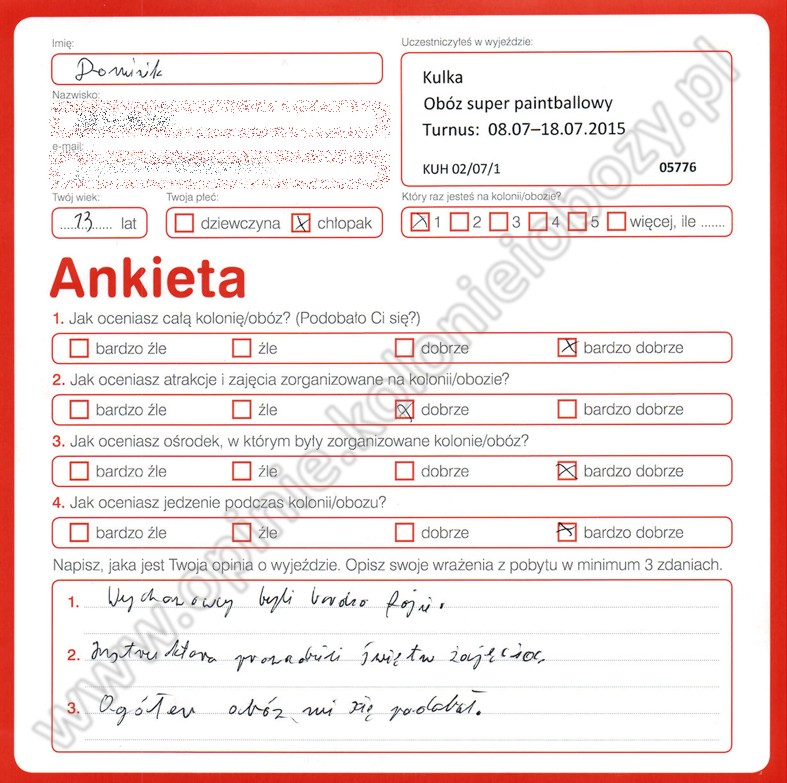 Imię:
Dominik
Uczestniczyłeś w wyjeździe:
Kulka
Obóz super paintballowy
Turnus: 08.07–18.07.2015
KUH 02/07/1 05776
Nazwisko:
e-mail:
Twój wiek:
13 lat
Twoja płeć:
dziewczyna chłopak
Który raz jesteś na kolonii/obozie?
1 2 3 4 5 więcej, ile .......
Ankieta
1. Jak oceniasz całą kolonię/obóz? (Podobało Ci się?)
bardzo źle źle dobrze bardzo dobrze
2. Jak oceniasz atrakcje i zajęcia zorganizowane na kolonii/obozie?
bardzo źle źle dobrze bardzo dobrze
3. Jak oceniasz ośrodek, w którym były zorganizowane kolonie/obóz?
bardzo źle źle dobrze bardzo dobrze
4. Jak oceniasz jedzenie podczas kolonii/obozu?
bardzo źle źle dobrze bardzo dobrze
Napisz, jaka jest Twoja opinia o wyjeździe. Opisz swoje wrażenia z pobytu w minimum 3 zdaniach.
1. Wychowawcy byli bardzo fajni.
2. prowadzili
3. Ogółem obóz mi się podobał.
www.opinie.kolonieiobozy.pl